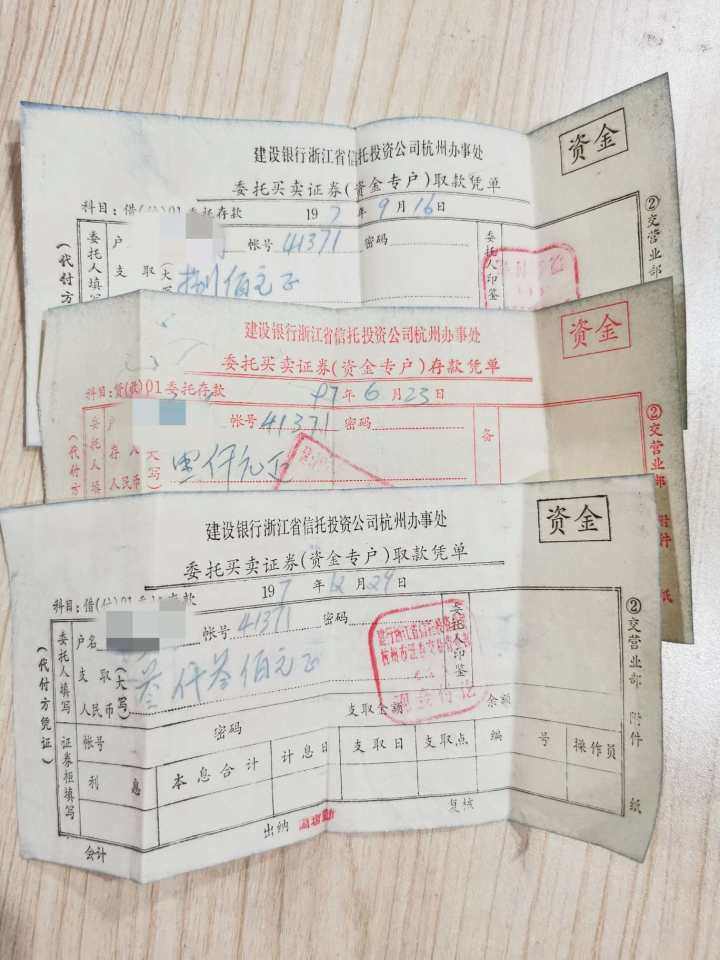 建设银行浙江省信托投资公司杭州办事处
资金
委托买卖证券(资金专户)取款凭单
科目:借(付)01委托存款 1997年9月16日
②交营业部
(代付方
委托人填写
户
帐号 41371 密码
委托人印鉴
支取(大写) 捌佰元正
建设银行浙江省信托投资公司杭州办事处
资金
委托买卖证券(资金专户)存款凭单
科目:贷(收)01委托存款 97年6月23日
②交营业部 附件 纸
(代付方
委托人填
户
帐号 41371 密码
备
存入(大写)
人民币
仟元正
建设银行浙江省信托投资公司杭州办事处
资金
委托买卖证券(资金专户)取款凭单
1997年12月29日
科目:借(付)01委托存款
②交营业部 附件 纸
(代付方凭证)
委托人填写
户名
帐号 41371 密码
委托人印鉴
支取(大写)
人民币
叁仟叁佰元正
现金付讫
支取金额 余额
证券柜填写
帐号 密码
利息 本息合计 计息日 支取日 支取点 编号 操作员
会计 出纳 复核